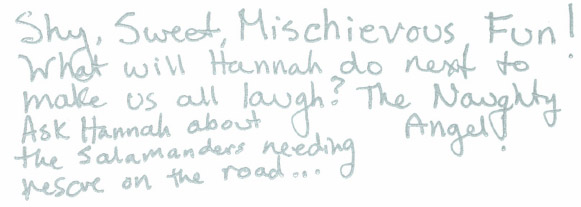 Shy, Sweet, Mischievous Fun!
What will Hannah do next to
make us all laugh? The Naughty
Angel!
Ask Hannah about
the Salamanders needing
rescue on the road...